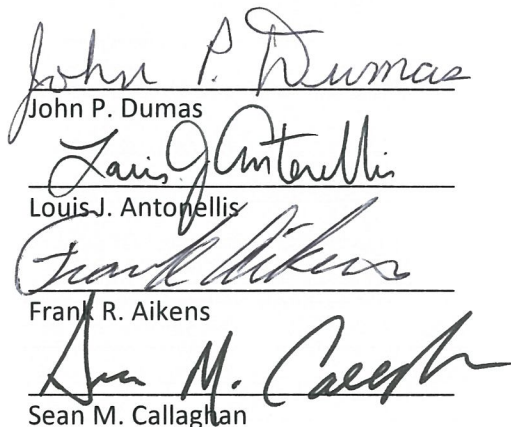 John P. Dumas
John P. Dumas
Louis J Antonellis
Louis J. Antonellis
Frank R Aikens
Frank R. Aikens
Sean M. Callaghan
Sean M. Callaghan